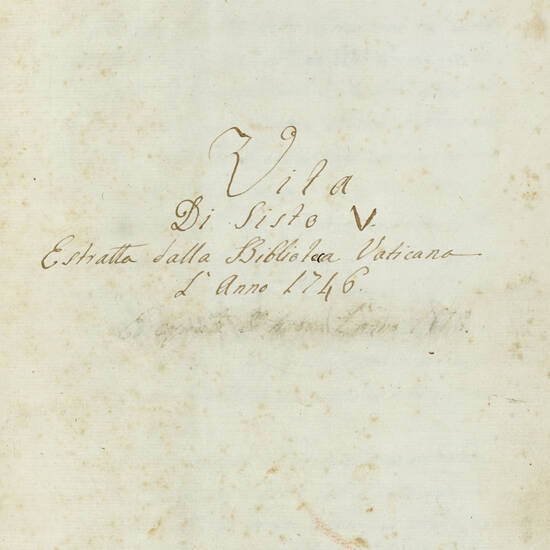 Vita
Di Sisto V.
Estratta dalla Biblioteca Vaticana
L'Anno 1746.